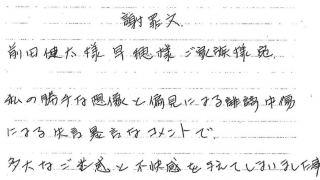 謝罪文
前田健太様早穂様ご親族様宛
私の勝手な想像と偏見による誹謗中傷
による失言暴言なコメントで、
多大なご迷惑と不快感を与えてしまいました事